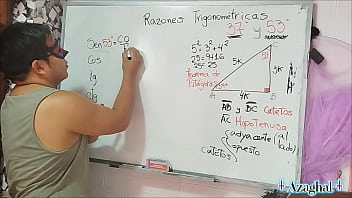 Razones Trigonométricas
37 y 53°
Sen 53° = CO
Cos
tg
ctg
5² = 3² + 4²
25 = 9+16
25 = 25
Teorema de
Pitágoras
5K
3K
4K
A
B
AB y BC Catetos
AC Hipotenusa
Catetos
adyacente (al lado)
opuesto
‡Azaghal‡